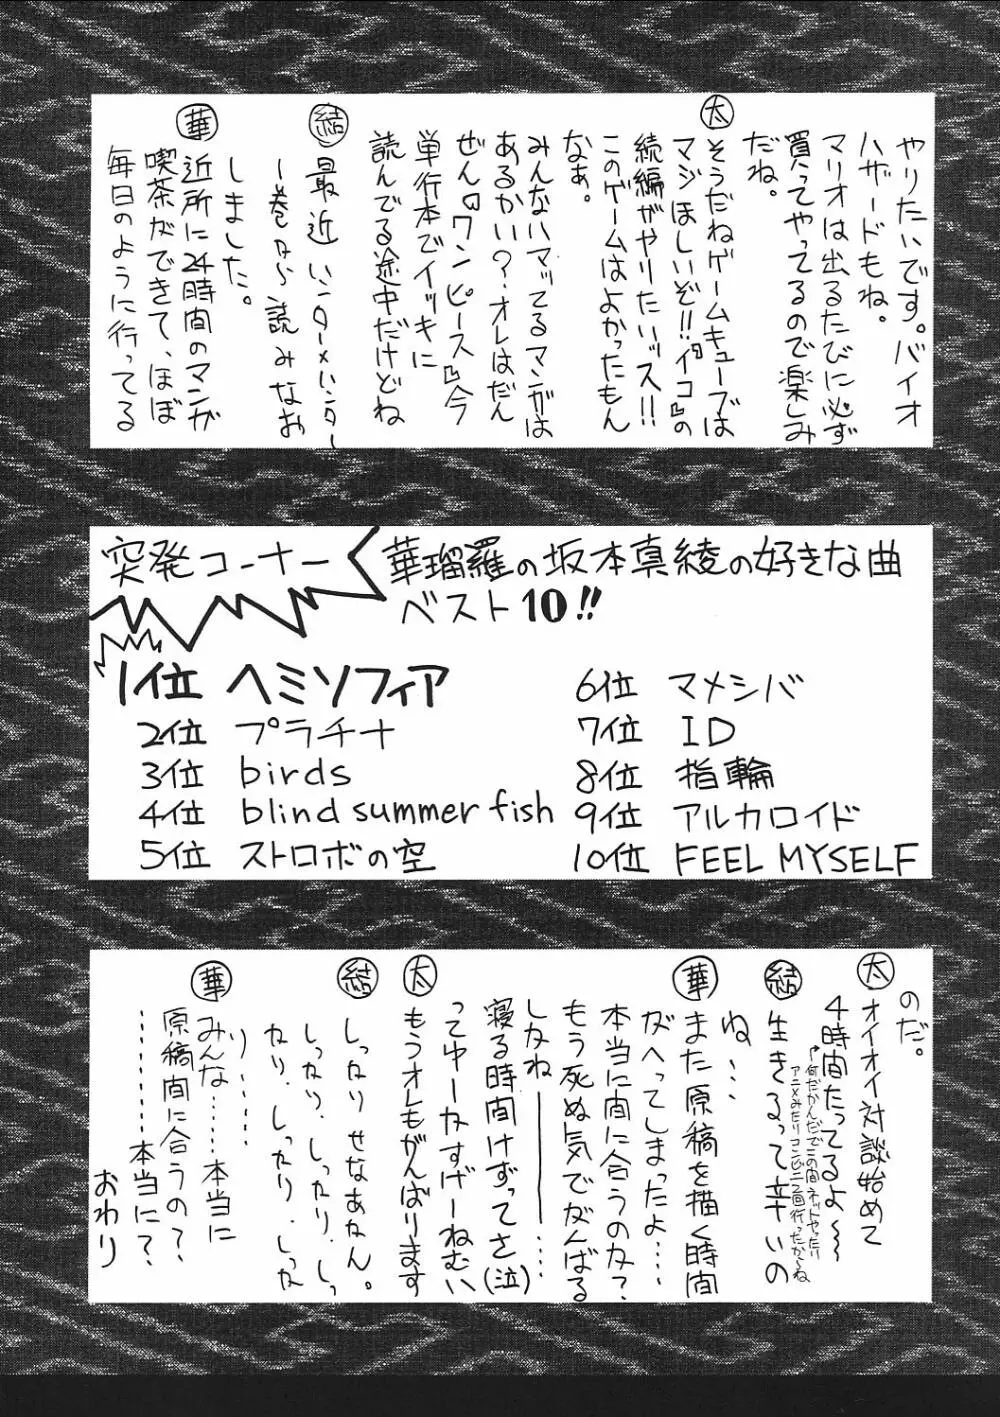 やりたいです。バイオ
ハザードもね。
マリオは出るたびに必ず
買ってやってるので楽しみ
だね。
太 そうだねゲームキューブは
マジほしいぞ!!『イコ』の
続編がやりたいッス!!
このゲームはよかったもん
なぁ。
みんなハマッてるマンガは
あるかい?オレはだん
ぜん『ワンピース』今
単行本でイッキに
読んでる途中だけどね
結 最近ハンターハンター
1巻から読みなお
しました。
華 近所に24時間のマンガ
喫茶ができて、ほぼ
毎日のように行ってる
突発コーナー
華瑠羅の坂本真綾の好きな曲
ベスト10!!
1位 ヘミソフィア
2位 プラチナ
3位 birds
4位 blind summer fish
5位 ストロボの空
6位 マメシバ
7位 ID
8位 指輪
9位 アルカロイド
10位 FEEL MYSELF
のだ。
太 オイオイ対談始めて
4時間たってるよ〜〜
→何だかんだでこの間ネットやったり
アニメみたりコンビニ2回行ったから〜ね
結 生きるって辛いの
ね…
華 また原稿を描く時間
がへってしまったよ…
本当に間に合うのか?
もう死ぬ気でがんばる
しかね――――…
寝る時間けずってさ(泣)
ってゆーかすげーねむい
太 もうオレもがんばります
結 しっかりせなあかん。
しっかり、しっかり、しっ
かり、しっかり、しっか
り……
華 みんな……本当に
原稿間に合うの?
………本当に?
おわり